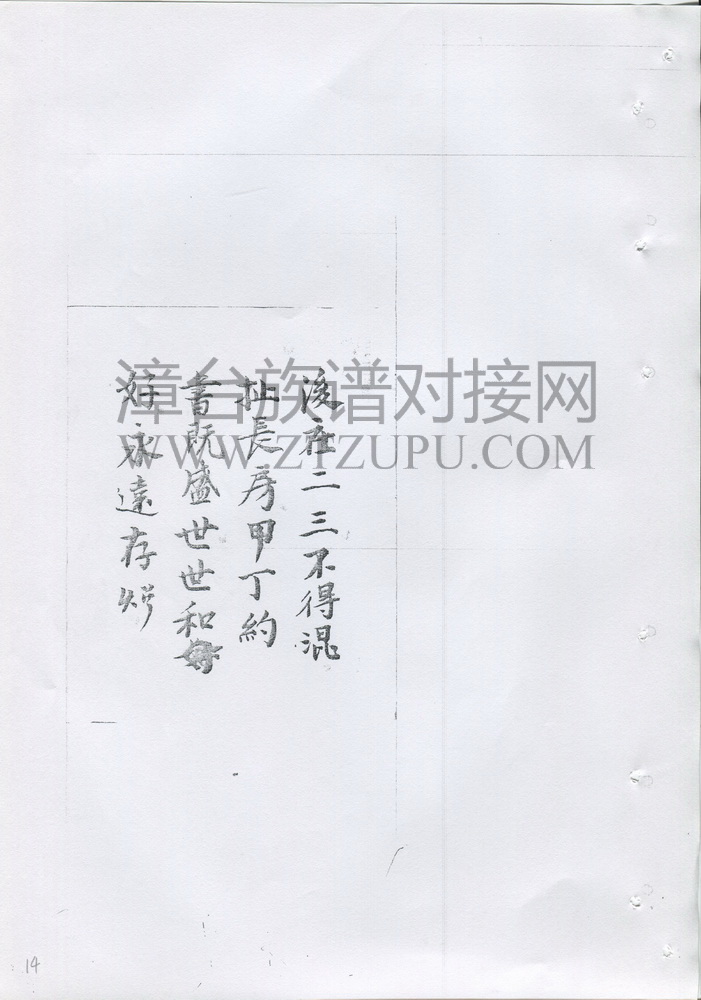 後在二三不得混
扯長房甲丁約
書既盛世世和
好永遠存炤
漳台族谱对接网
WWW.ZTZUPU.COM
14